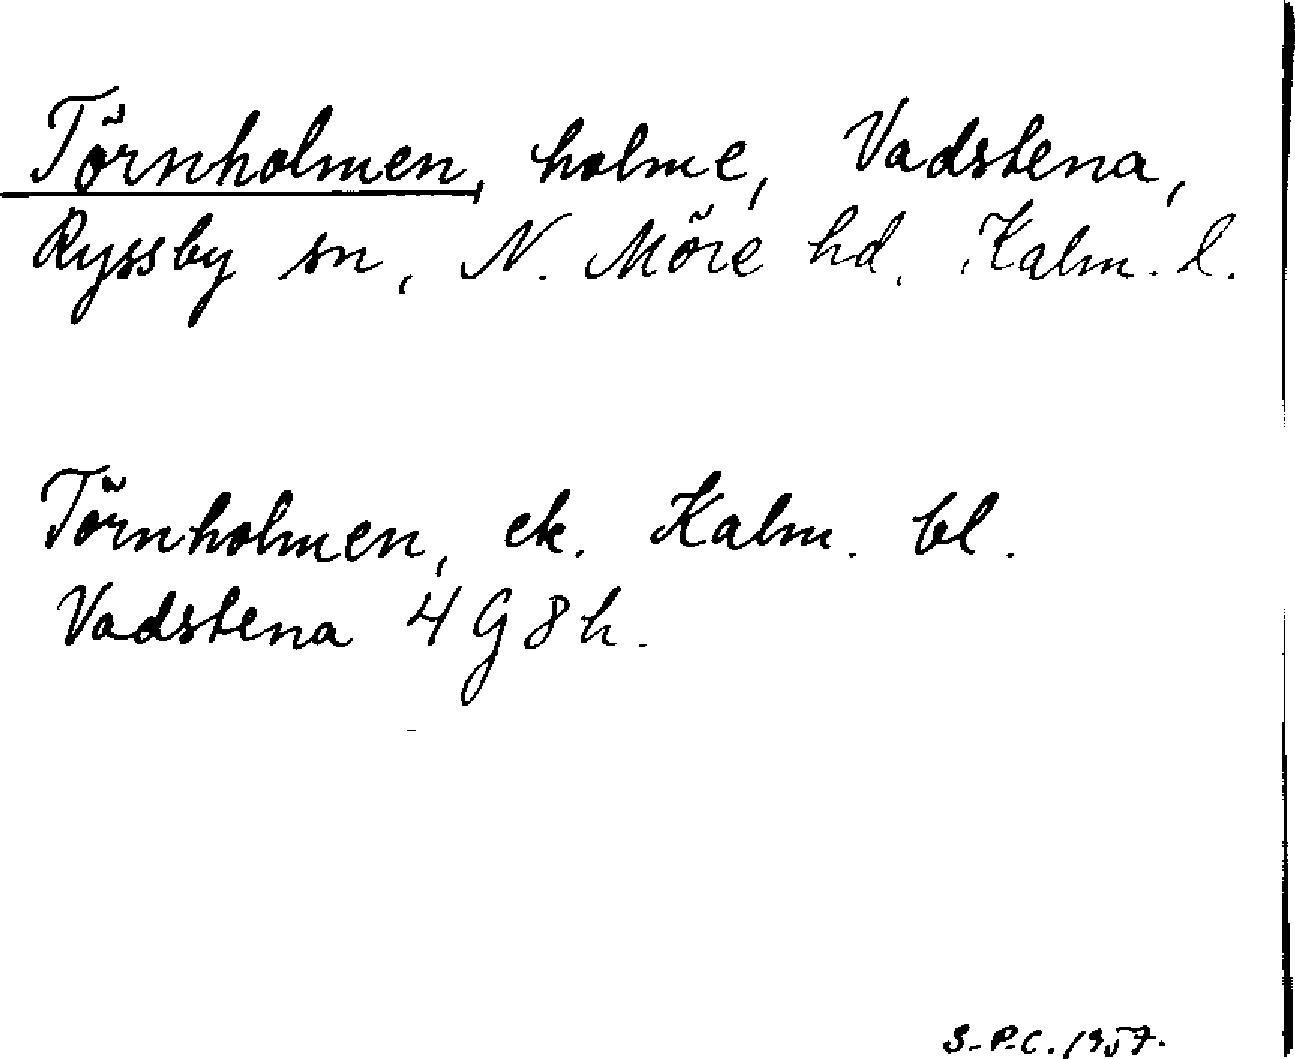 Törnholmen, holme, Vadstena,
Ryssby sn, N. Möre hd, Kalm. l.
Törnholmen, ek. Kalm. bl.
Vadstena 4 G 8 h.
S-P.C. 1957.